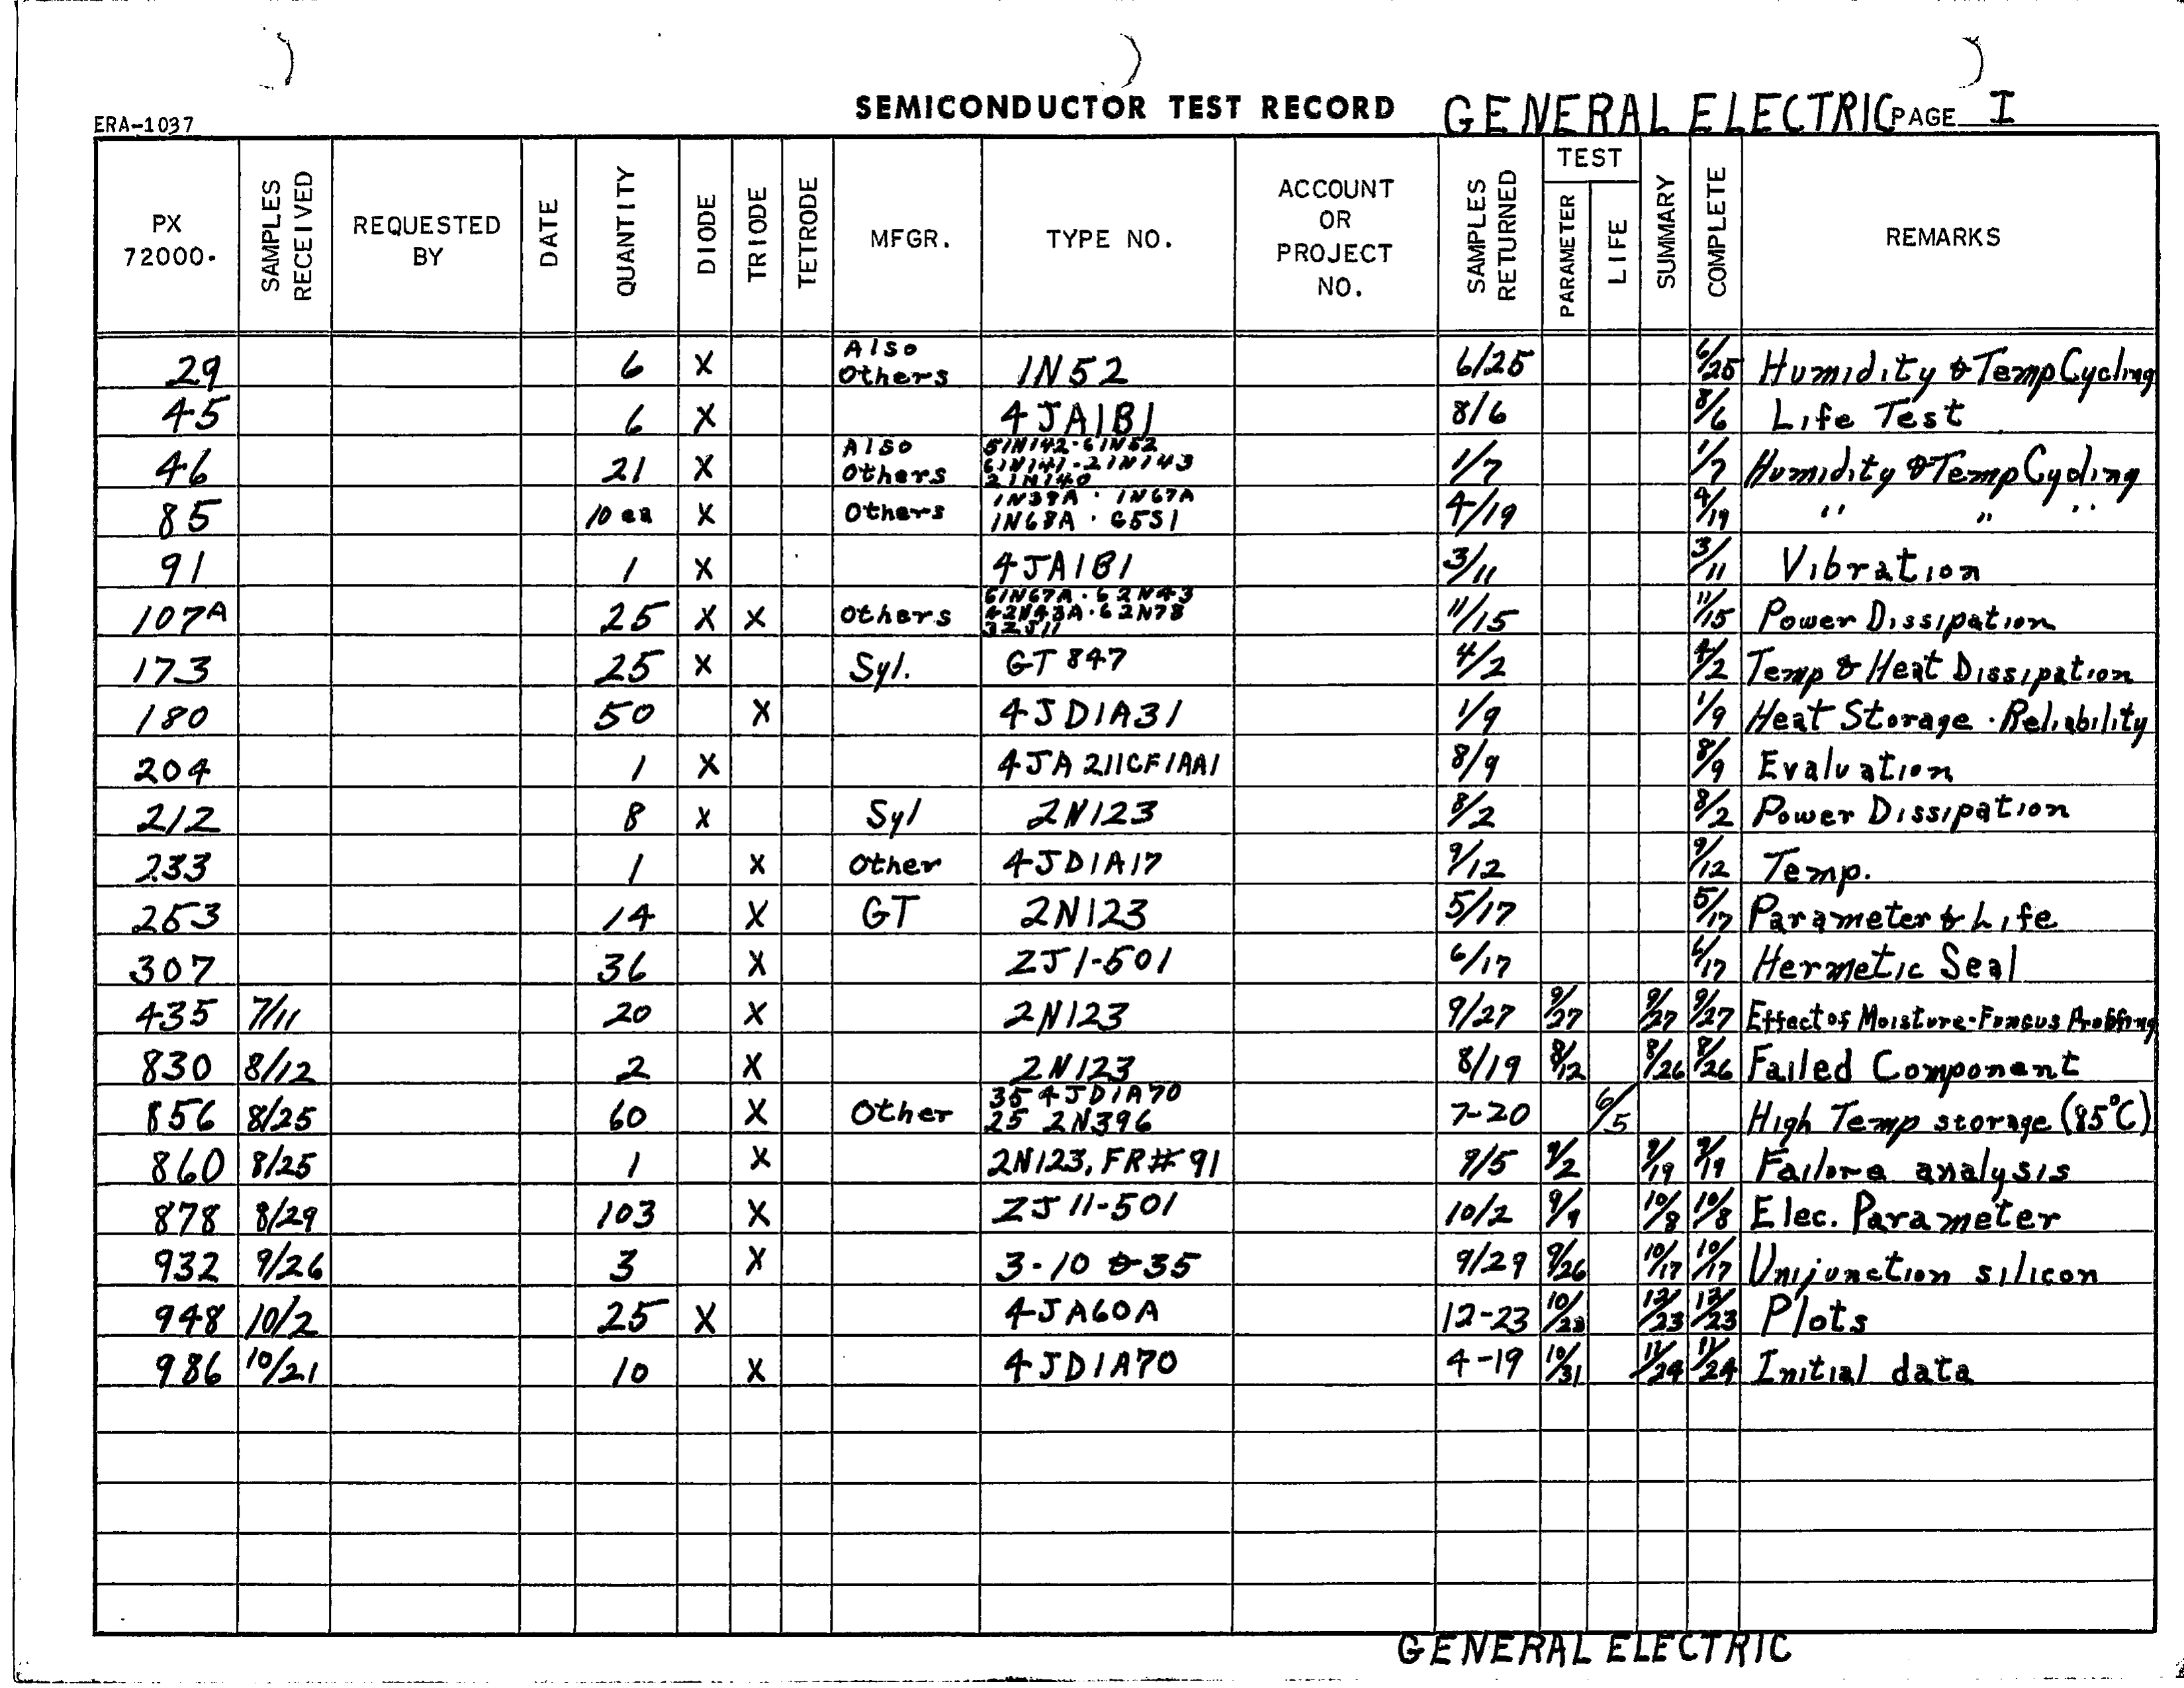 SEMICONDUCTOR TEST RECORD GENERAL ELECTRIC PAGE I
ERA-1037
PX 72000- SAMPLES RECEIVED REQUESTED BY DATE QUANTITY DIODE TRIODE TETRODE MFGR. TYPE NO. ACCOUNT OR PROJECT NO. SAMPLES RETURNED TEST PARAMETER LIFE SUMMARY COMPLETE REMARKS
29 6 X Also Others 1N52 6/25 6/25 Humidity & Temp Cycling
45 6 X 4JA1B1 8/6 8/6 Life Test
46 21 X Also Others 51N142·61N52 61N141-21N143 21N140 1/7 1/7 Humidity & Temp Cycling
85 10 ea X Others 1N38A · 1N67A 1N68A · G5S1 4/19 4/19 " " "
91 1 X 4JA1B1 3/11 3/11 Vibration
107A 25 X X Others 61N67A·62N43 42N43A·62N78 32J11 11/15 11/15 Power Dissipation
173 25 X Syl. GT 847 4/2 4/2 Temp & Heat Dissipation
180 50 X 4JD1A31 1/9 1/9 Heat Storage · Reliability
204 1 X 4JA211CF1AA1 8/9 8/9 Evaluation
212 8 X Syl 2N123 8/2 8/2 Power Dissipation
233 1 X Other 4JD1A17 9/12 9/12 Temp.
253 14 X GT 2N123 5/17 5/17 Parameter & Life
307 36 X ZJ1-501 6/17 6/17 Hermetic Seal
435 7/11 20 X 2N123 9/27 9/27 9/27 9/27 Effect of Moisture-Fungus
830 8/12 2 X 2N123 8/19 8/12 8/26 8/26 Failed Component
856 8/25 60 X Other 35 4JD1A70 25 2N396 7-20 6/5 High Temp storage (85°C)
860 8/25 1 X 2N123, FR#91 9/5 9/2 9/19 9/19 Failure analysis
878 8/29 103 X ZJ11-501 10/2 9/9 10/8 10/8 Elec. Parameter
932 9/26 3 X 3-10 & 35 9/29 9/26 10/17 10/17 Unijunction silicon
948 10/2 25 X 4JA60A 12-23 10/23 12/23 12/23 Plots
986 10/21 10 X 4JD1A70 4-19 10/31 11/24 11/24 Initial data
GENERAL ELECTRIC